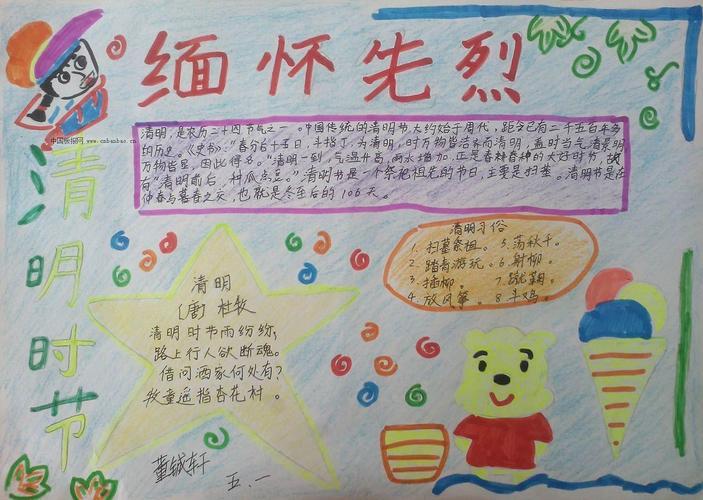 缅怀先烈
中国板报网
www.cnbanbao.cn
清明时节
清明,是农历二十四节气之一。中国传统的清明节大约始于周代,距今已有二千五百年多
的历史。《史书》:"春分后十五日,斗指丁,为清明,时万物皆洁齐而清明,盖时当气清景明
万物皆显,因此得名。"清明一到,气温升高,雨水增加,正是春林春种的大好时节,故
有"清明前后,种瓜点豆。"清明节是一个祭祀祖先的节日,主要是扫墓。清明节是在
仲春与暮春之交,也就是冬至后的106天。
清明习俗
1. 扫墓祭祖。 5. 荡秋千。
2. 踏青游玩。 6. 射柳。
3. 插柳。 7. 蹴鞠。
4. 放风筝。 8. 斗鸡。
清明
〔唐〕杜牧
清明时节雨纷纷,
路上行人欲断魂。
借问酒家何处有?
牧童遥指杏花村。
董铖轩
五.一